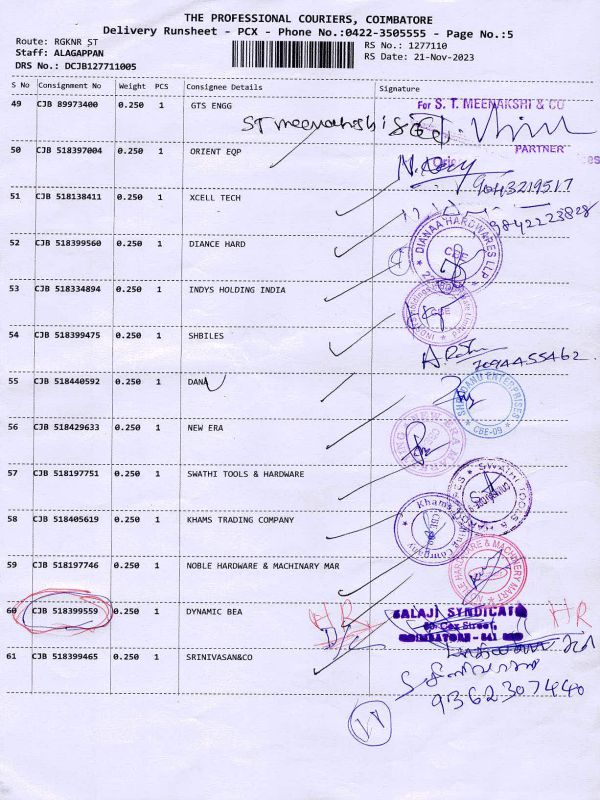 THE PROFESSIONAL COURIERS, COIMBATORE
Delivery Runsheet - PCX - Phone No.:0422-3505555 - Page No.:5
Route: RGKNR ST
Staff: ALAGAPPAN
DRS No.: DCJB127711005
RS No.: 1277110
RS Date: 21-Nov-2023
S No Consignment No Weight PCS Consignee Details Signature
49 CJB 89973400 0.250 1 GTS ENGG
ST meenakshi &
For S. T. MEENAKSHI & CO
PARTNER
50 CJB 518397004 0.250 1 ORIENT EQP
9043219517
51 CJB 518138411 0.250 1 XCELL TECH
9842223828
52 CJB 518399560 0.250 1 DIANCE HARD
DIANAA HARDWARES LLP
CBE
53 CJB 518334894 0.250 1 INDYS HOLDING INDIA
CBE
54 CJB 518399475 0.250 1 SHBILES
55 CJB 518440592 0.250 1 DANA
ENTERPRISES
CBE-09
56 CJB 518429633 0.250 1 NEW ERA
NEW ERA
57 CJB 518197751 0.250 1 SWATHI TOOLS & HARDWARE
SWATHI TOOLS & HARDWARES
58 CJB 518405619 0.250 1 KHAMS TRADING COMPANY
Khams Trading Company
59 CJB 518197746 0.250 1 NOBLE HARDWARE & MACHINARY MAR
HARDWARE & MACHINERY MART
60 CJB 518399559 0.250 1 DYNAMIC BEA
HR
BALAJI SYNDICATE
Cox Street,
COIMBATORE - 641
HR
61 CJB 518399465 0.250 1 SRINIVASAN&CO
9362307440
11